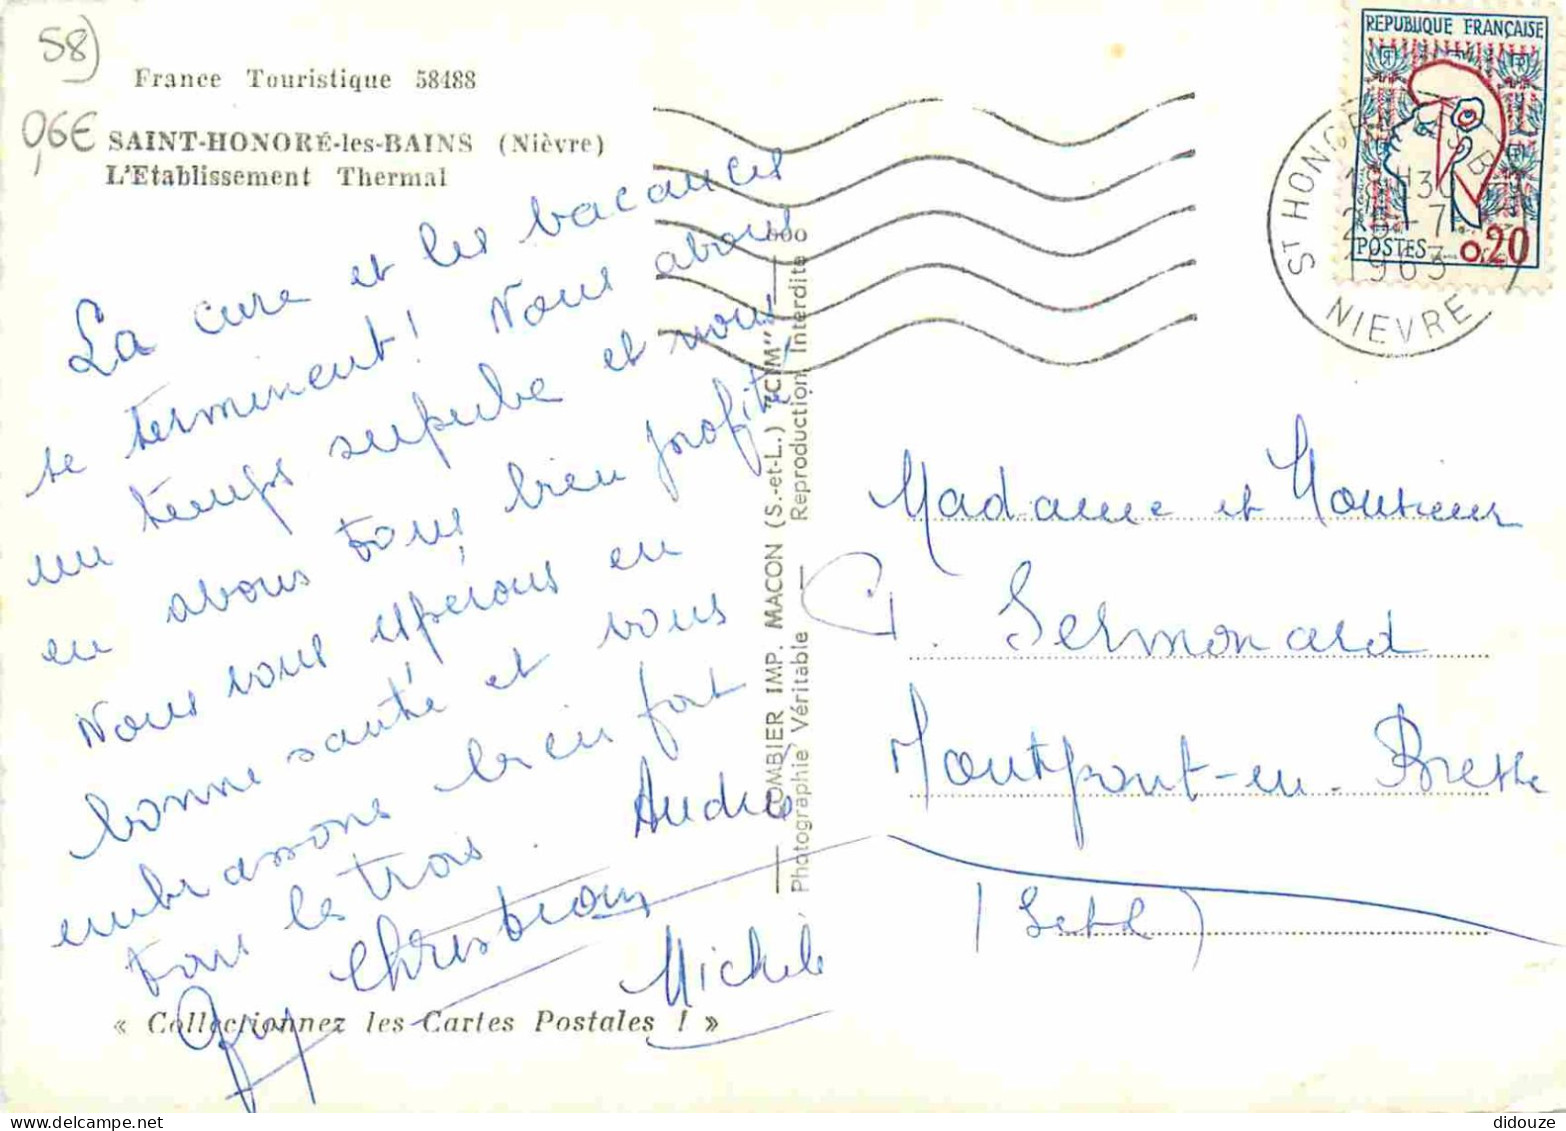 58)
0,6€
France Touristique 58488
SAINT-HONORÉ-les-BAINS (Nièvre)
L'Etablissement Thermal
La cure et les vacances
se terminent! Nous avons
un temps superbe et nous
en avons tous bien profité!
Nous vous espérons en
bonne santé et vous
embrassons bien fort
tous les trois. Andrée
Christian
Guy Michele
« Collectionnez les Cartes Postales ! »
COMBIER IMP. MACON (S.-et-L.) "CIM"
Photographie Véritable — Reproduction Interdite
REPUBLIQUE FRANÇAISE
POSTES 0,20
ST HONORE LES B.
1963
NIEVRE
Madame et Monsieur
G. Sermonard
Montpont-en-Bresse
(S et L)
didouze